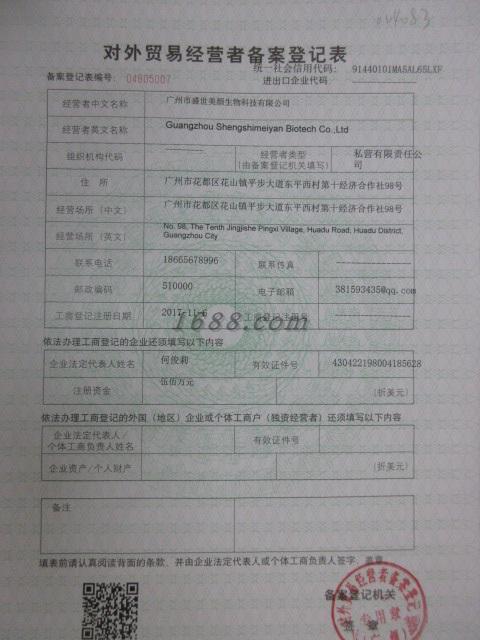 004083
对外贸易经营者备案登记表
统一社会信用代码： 91440101MA5AL65LXF
备案登记表编号： 04805007
进出口企业代码 ------------
经营者中文名称 广州市盛世美颜生物科技有限公司
经营者英文名称 Guangzhou Shengshimeiyan Biotech Co.,Ltd
组织机构代码 ------------ 经营者类型
(由备案登记机关填写) 私营有限责任公
司
住 所 广州市花都区花山镇平步大道东平西村第十经济合作社98号
经营场所（中文） 广州市花都区花山镇平步大道东平西村第十经济合作社98号
经营场所（英文） No. 98, The Tenth Jingjishe Pingxi Village, Huadu Road, Huadu District,
Guangzhou City
联系电话 18665678996 联系传真 ------------
邮政编码 510000 电子邮箱 381593435@qq.com
工商登记注册日期 2017-11-6 工商登记注册号 ------------
1688.com
依法办理工商登记的企业还须填写以下内容
企业法定代表人姓名 何俊莉 有效证件号 430422198004185628
注册资金 伍佰万元 (折美元)
依法办理工商登记的外国（地区）企业或个体工商户（独资经营者）还须填写以下内容
企业法定代表人/
个体工商负责人姓名 有效证件号
企业资产/个人财产 (折美元)
备注
填表前请认真阅读背面的条款，并由企业法定代表人或个体工商负责人签字、盖章。
备案登记机关
签 章
对外贸易经营者备案登记
专用章